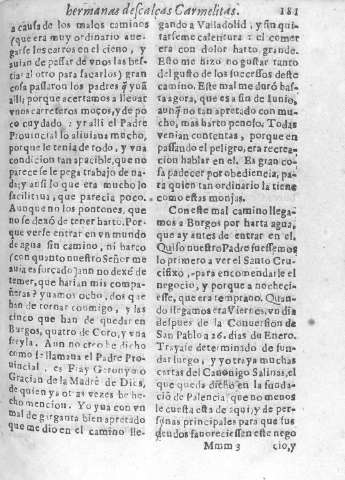 hermanas descalças Carmelitas. 181
a causa de los malos caminos
(que era muy ordinario ate-
garse los carros en el cieno, y
auian de passar de vnos las bes-
tias al otro para sacarlos) gran
cosa passaron los padres q̃ yuā
alli; porque acertamos a lleuar
vnos carreteros moços, y de po
co cuydado. Yr alli el Padre
Prouincial lo aliuiaua mucho,
porque le tenia de todo, y vna
condicion tan apacible, que no
parece se le pega trabajo de na-
da; y ansi lo que era mucho lo
facilitaua, que parecia poco.
Aunque no los pontones, que
no se dexò de temer harto. Por
que verse entrar en vn mundo
de agua sin camino, ni barco
(con quanto nuestro Señor me
auia esforçado) aun no dexè de
temer, que harian mis compa-
ñeras? yuamos ocho, dos que
han de tornar conmigo, y las
cinco que han de quedar en
Burgos, quatro de Coro, y vna
freyla. Aun no creo he dicho
como se llamaua el Padre Pro-
uincial, es Fray Geronymo
Gracian de la Madre de Dios,
de quien ya otras vezes he he-
cho mencion. Yo yua con vn
mal de garganta bien apretado
que me dio en el camino lle-
gando a Valladolid, y sin qui-
tarseme calentura: el comer
era con dolor harto grande.
Esto me hizo no gustar tanto
del gusto de los sucessos deste
camino. Este mal me durò has-
ta agora, que es a fin de Iunio,
aunq̃ no tan apretado con mu-
cho, mas harto penoso. Todas
venian contentas, porque en
passando el peligro, era recrea-
cion hablar en el. Es gran co-
sa padecer por obediencia, pa-
ra quien tan ordinario la tiene
como estas monjas.
Con este mal camino llega-
mos a Burgos por harta agua,
que ay antes de entrar en el.
Quiso nuestro Padre fuessemos
lo primero a ver el Santo Cru-
cifixo, para encomendarle el
negocio, y porque anocheci-
esse, que era temprano. Quan-
do llegamos era Viernes, vn dia
despues de la Conuersion de
San Pablo a 26. dias de Enero.
Trayase determinado de fun-
dar luego, y yo traya muchas
cartas del Canonigo Salinas, el
que queda dicho en la funda-
ciō de Palencia, que no menos
le cuesta esta de aqui, y de per-
sonas principales para que sus
deudos fauoreciessen este nego
Mmm 3 cio, y